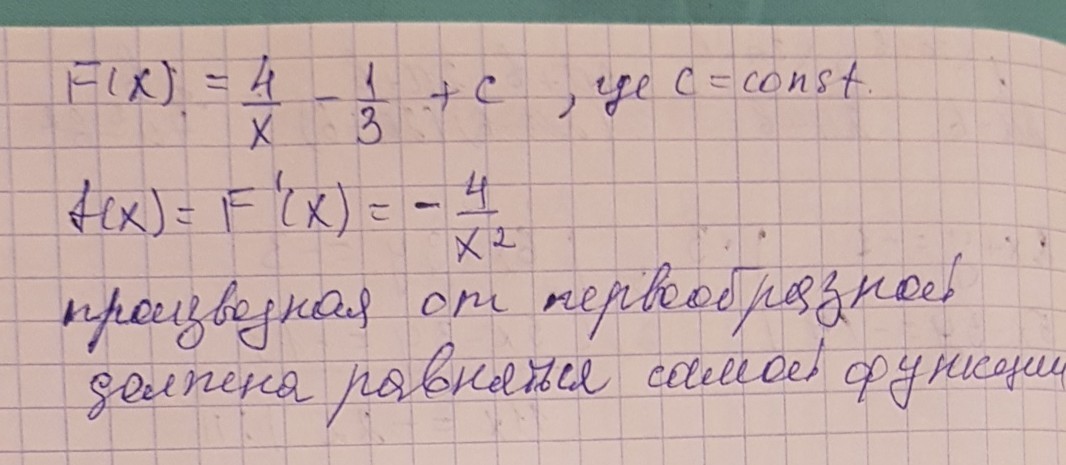 F(x) = 4/x - 1/3 + c , где c = const.
f(x) = F'(x) = - 4/x²
производная от первообразной
должна равняться самой функции